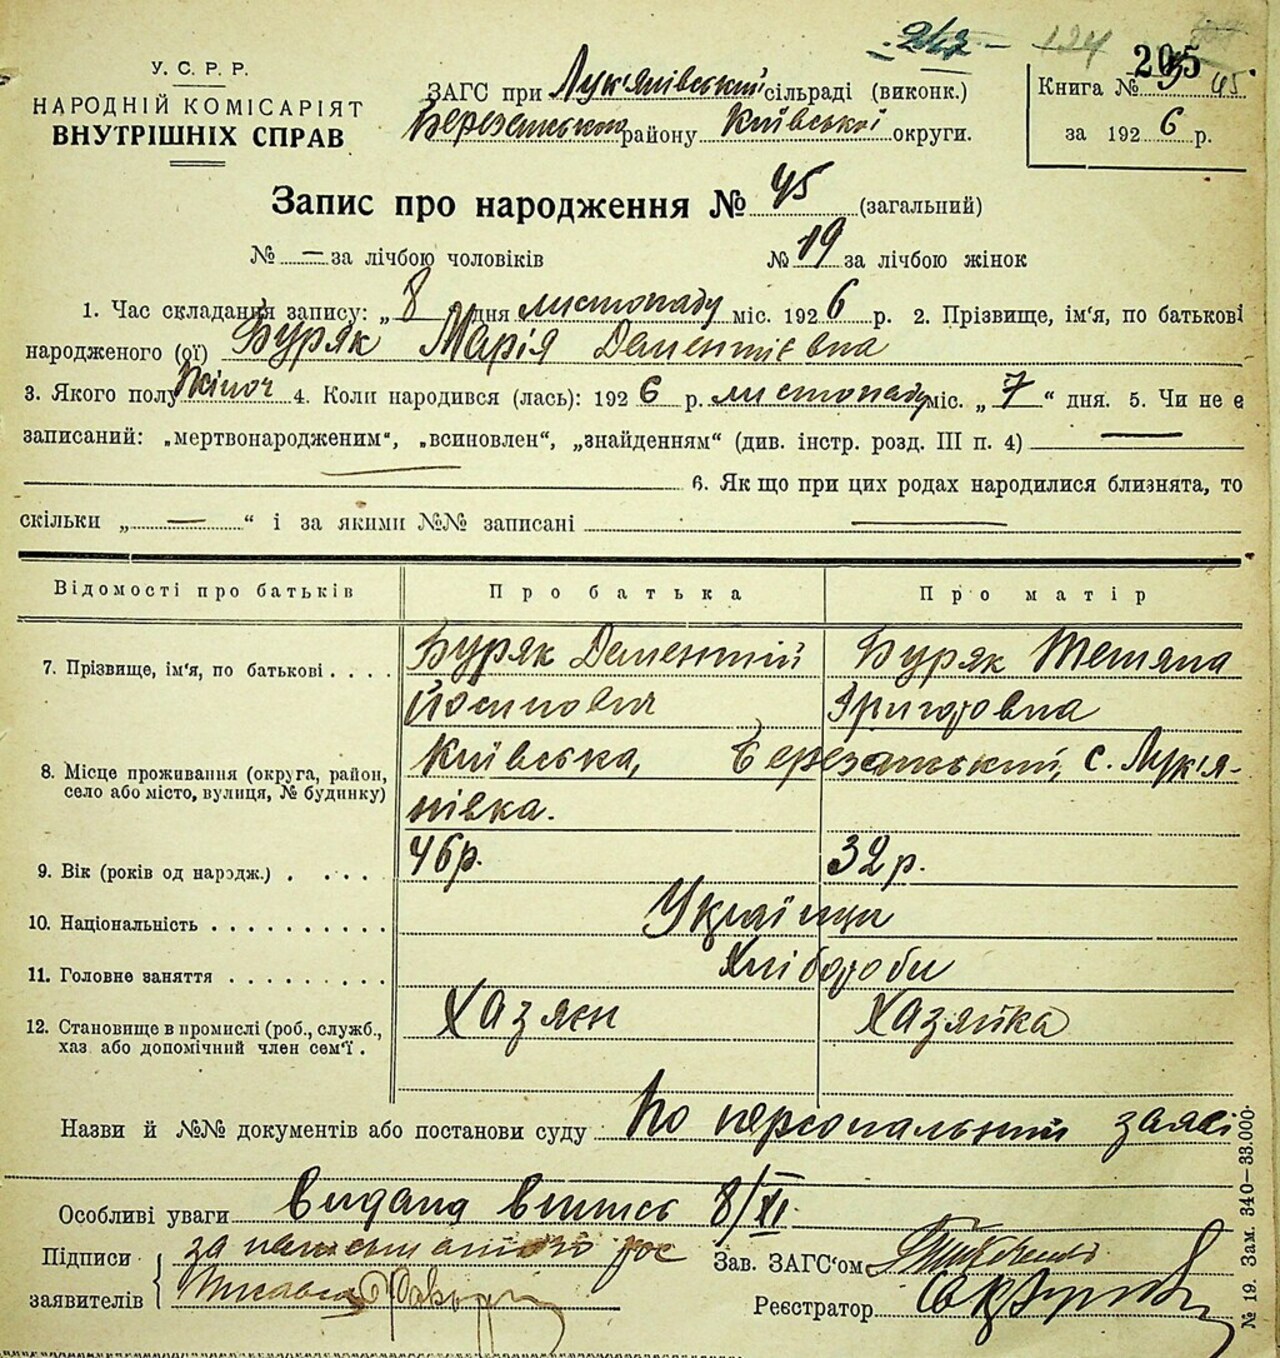 242 - 124
205
У. С. Р. Р.
НАРОДНІЙ КОМІСАРІЯТ
ВНУТРІШНІХ СПРАВ
ЗАГС при Лук'янівський сільраді (виконк.)
Березанського району Київської округи.
Книга № 3 45
за 1926 р.
Запис про народження № 45 (загальний)
№ — за лічбою чоловіків № 19 за лічбою жінок
1. Час складання запису: „ 8 дня листопаду міс. 1926 р. 2. Прізвище, ім'я, по батькові
народженого (ої) Буряк Марія Дементієвна
3. Якого полу жіноч 4. Коли народився (лась): 1926 р. листопаду міс. „ 7 “ дня. 5. Чи не є
записаний: „мертвонародженим“, „всиновлен“, „знайденням“ (див. інстр. розд. III п. 4) —
— 6. Як що при цих родах народилися близнята, то
скільки „ — “ і за якими №№ записані —
Відомості про батьків Про батька Про матір
7. Прізвище, ім'я, по батькові . . . . Буряк Дементій Буряк Тетяна
Йосипович Григоровна
8. Місце проживання (округа, район, село або місто, вулиця, № будинку) Київська, Березанський, с. Лук'я-
нівка.
9. Вік (років од народж.) . . . . . 46 р. 32 р.
10. Національність . . . . . . . . . . Українци
11. Головне заняття . . . . . . . . . Хлібороби
12. Становище в промислі (роб., служб., хаз. або допомічний член сем'ї . Хазяєн Хазяйка
Назви й №№ документів або постанови суду: По персональний заяві
Особливі уваги Видана випись 8/XI.
Підписи
заявителів
за
Зав. ЗАГС'ом
Реєстратор
№ 19. Зам. 340—33.000.